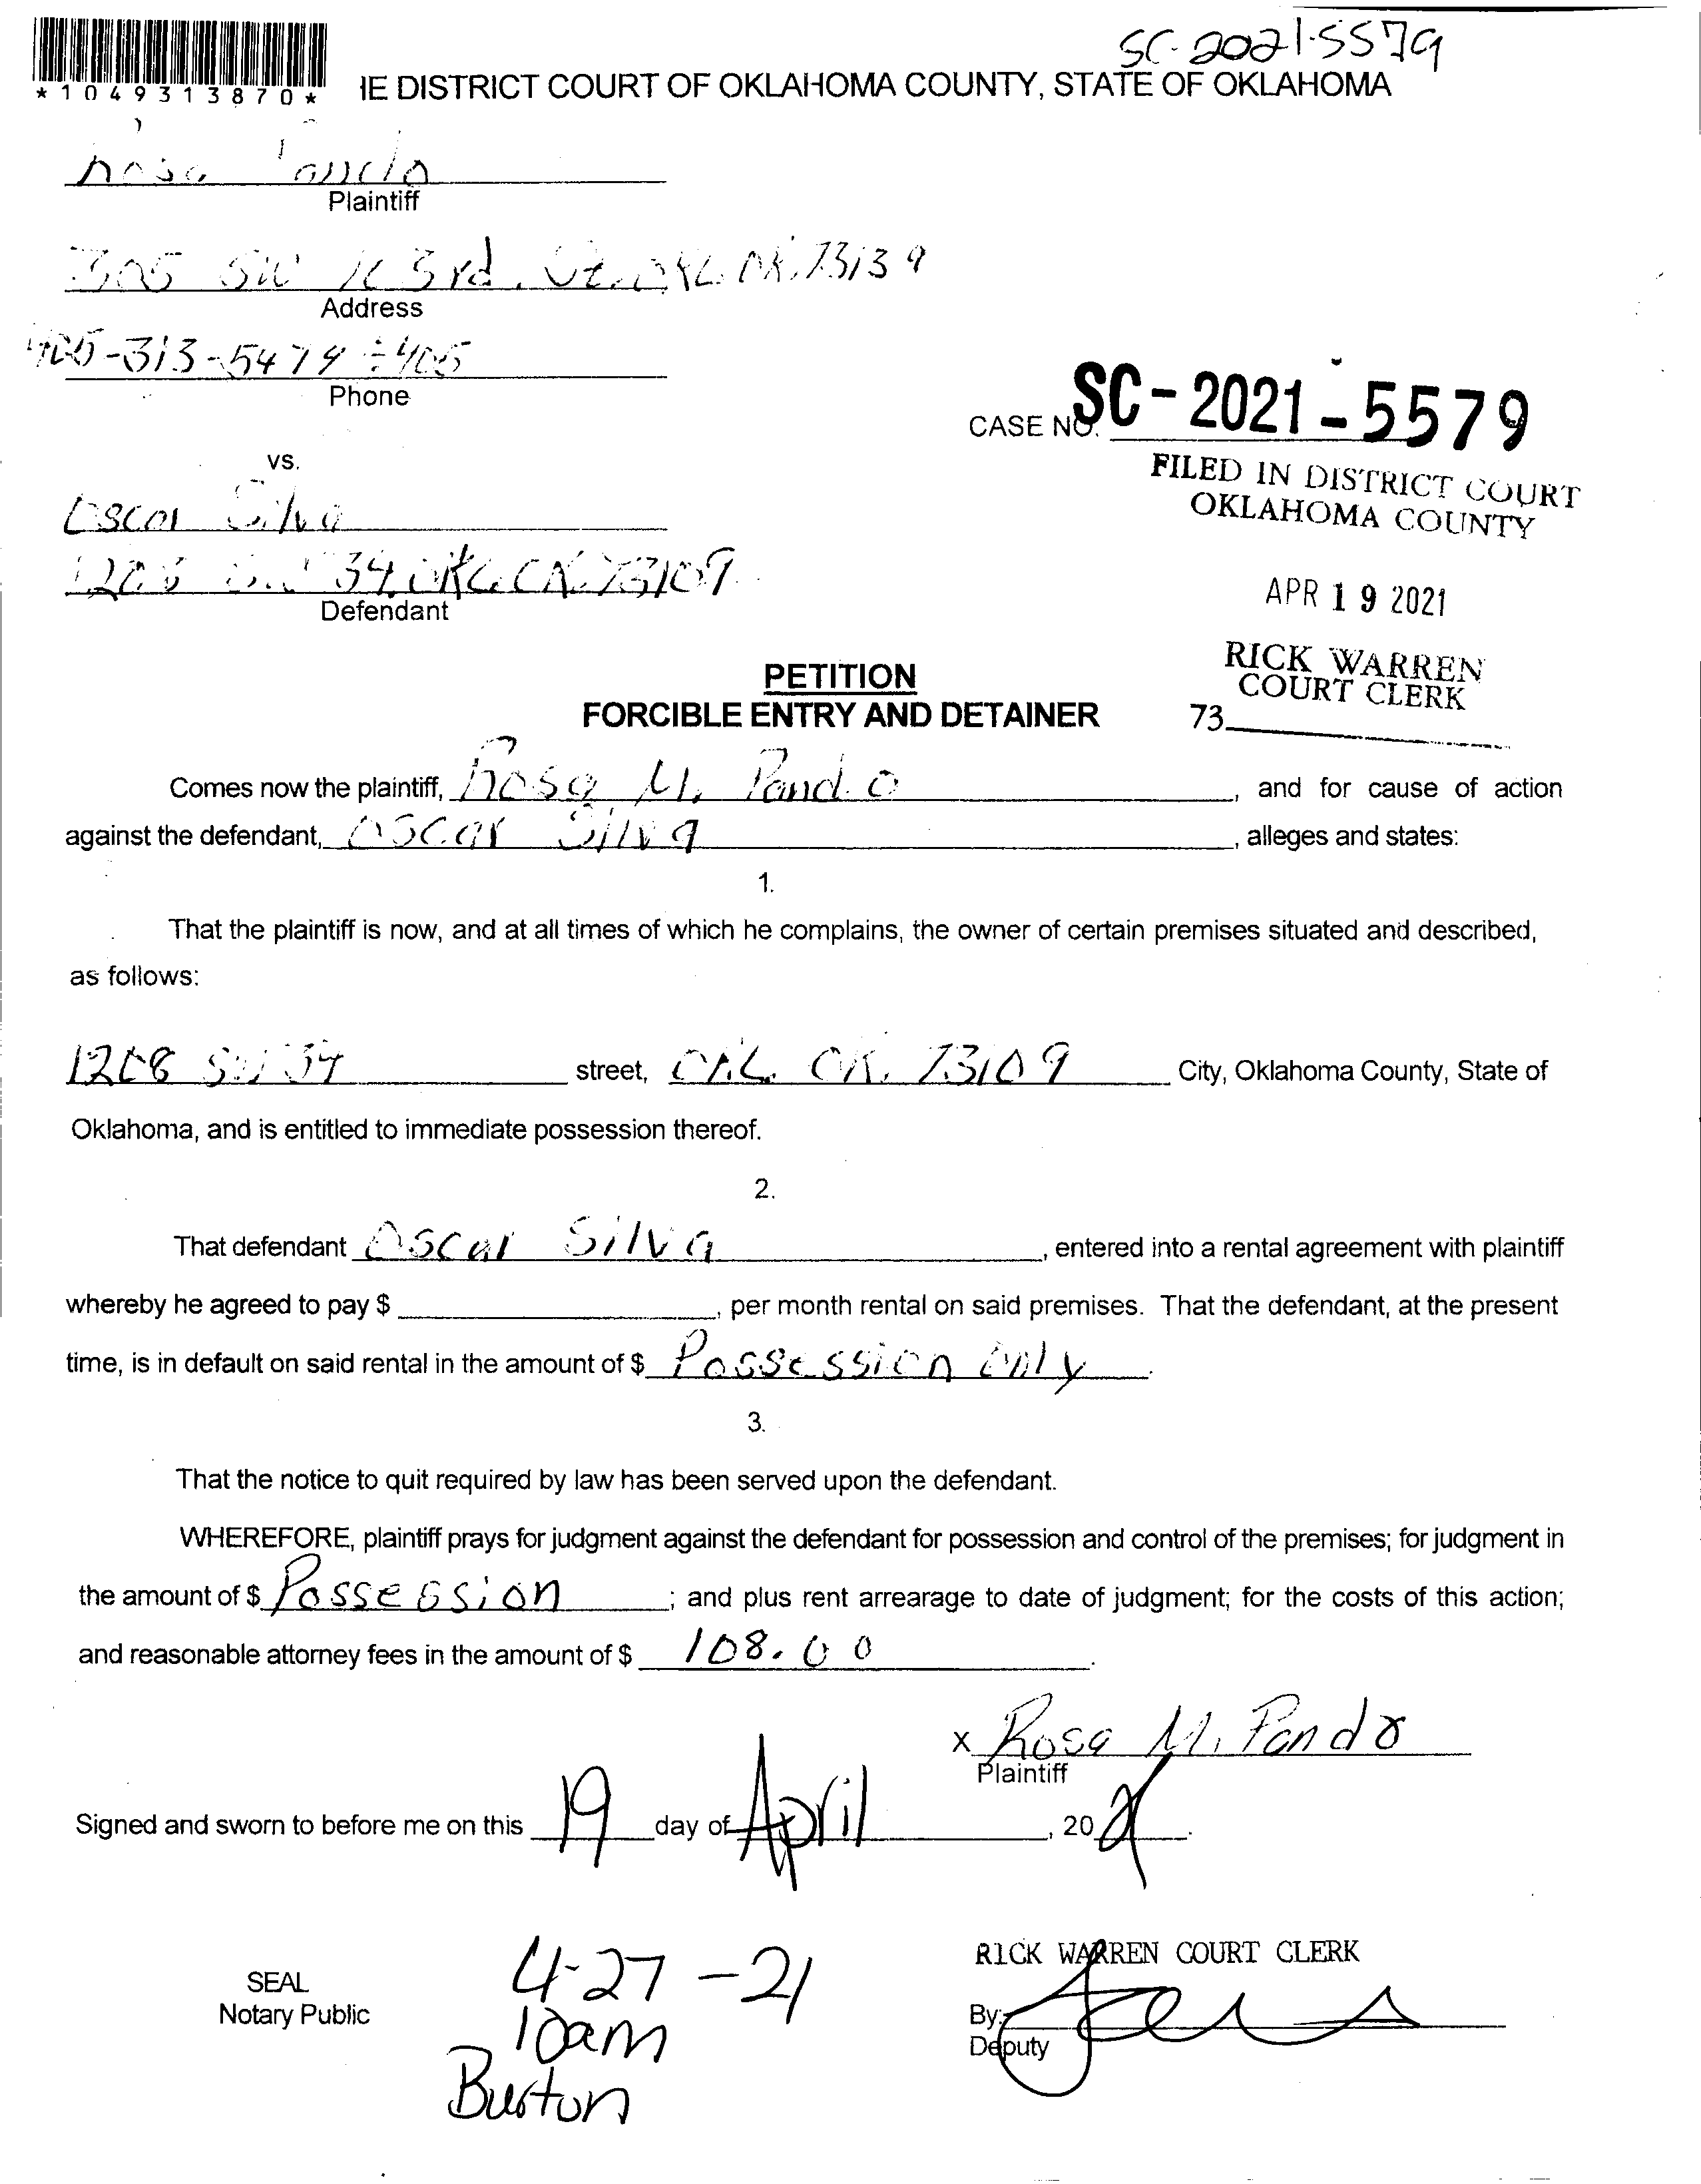 SC-2021-5579
*1049313870*
IE DISTRICT COURT OF OKLAHOMA COUNTY, STATE OF OKLAHOMA
Rosa Pando
Plaintiff
305 SW 163rd. St. OKC. OK. 73139
Address
405-313-5474 405
Phone
CASE NO. SC-2021-5579
FILED IN DISTRICT COURT
OKLAHOMA COUNTY
vs.
Oscar Silva
1208 SW 34 OKC. OK. 73109
Defendant
APR 19 2021
RICK WARREN
COURT CLERK
73
PETITION
FORCIBLE ENTRY AND DETAINER
Comes now the plaintiff, Rosa M. Pando, and for cause of action
against the defendant, Oscar Silva, alleges and states:
1.
That the plaintiff is now, and at all times of which he complains, the owner of certain premises situated and described,
as follows:
1208 SW 34 street, OKC. OK. 73109 City, Oklahoma County, State of
Oklahoma, and is entitled to immediate possession thereof.
2.
That defendant Oscar Silva, entered into a rental agreement with plaintiff
whereby he agreed to pay $ , per month rental on said premises. That the defendant, at the present
time, is in default on said rental in the amount of $ Possession Only.
3.
That the notice to quit required by law has been served upon the defendant.
WHEREFORE, plaintiff prays for judgment against the defendant for possession and control of the premises; for judgment in
the amount of $ Possession; and plus rent arrearage to date of judgment; for the costs of this action;
and reasonable attorney fees in the amount of $ 108.00.
x Rosa M. Pando
Plaintiff
Signed and sworn to before me on this 19 day of April, 20 21.
4-27-21
10am
Burton
SEAL
Notary Public
RICK WARREN COURT CLERK
By:
Deputy